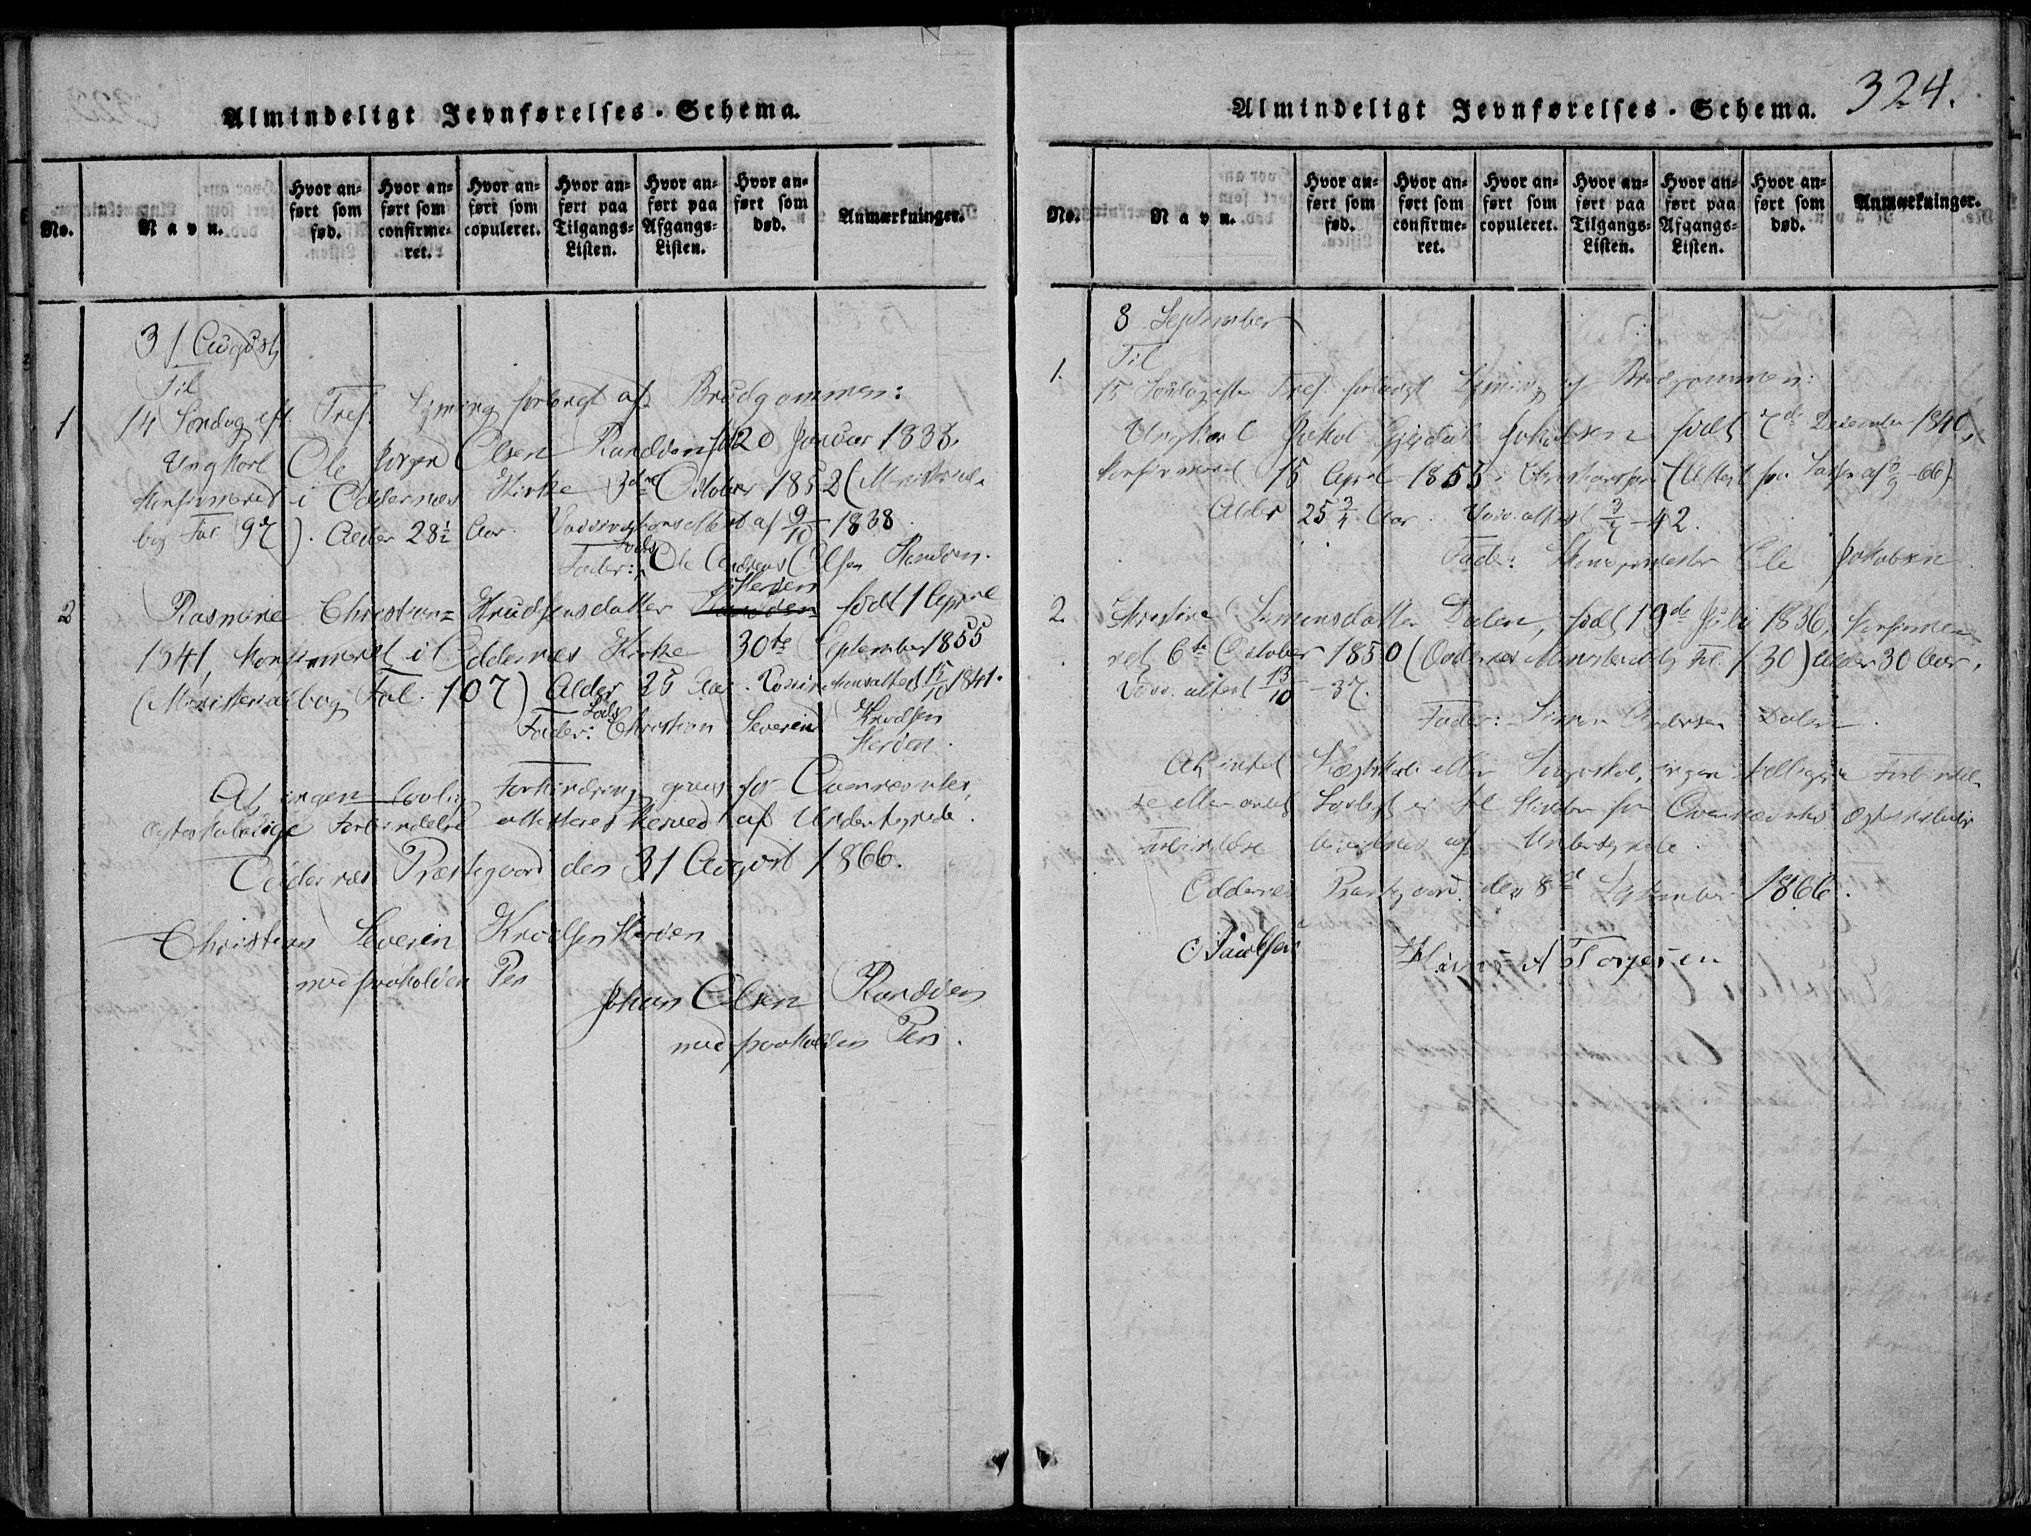 Almindeligt Jevnførelses-Schema.
No.
Navn.
Hvor anført som fød.
Hvor anført som confirmeret.
Hvor anført som copuleret.
Hvor anført paa Tilgangs-Listen.
Hvor anført paa Afgangs-Listen.
Hvor anført som død.
Anmærkninger.
31 August
Til
1 14 Søndag eft. Tref. Lysning forlangt af Brudgommen:
Ungkarl Ole Jørgen Olsen Randøen født 20 Januar 1838.
Konfirmeret i Oddernæs Kirke 3die October 1852 (Ministerial-
bog Fol 97). Alder 28½ Aar. Vaccinationsattest af 9/10 1838.
Fader: Ole Andreas Olsen Randøen.
2 Rasmine Christian= Knudsensdatter Herøen født 1 April
1841, Konfirmeret i Oddernæs Kirke 30te September 1855
(Ministerialbog Fol. 107) Alder 25 Aar. Vaccinationsattest 15/10 1841.
Fader: Christian Severin Knudsen
Herøen.
At ingen lovlig Forhindring for Ovennævntes
ægteskabelige Forbindelse attesteres herved af Undertegnede.
Oddernæs Præstegaard den 31 August 1866.
Christian Severin Knudsen Herøen
med paaholden Pen
Johan Olsen Randøen
med paaholden Pen.
324.
Almindeligt Jevnførelses-Schema.
No.
Navn.
Hvor anført som fød.
Hvor anført som confirmeret.
Hvor anført som copuleret.
Hvor anført paa Tilgangs-Listen.
Hvor anført paa Afgangs-Listen.
Hvor anført som død.
Anmærkninger.
8 September
Til
1. 15 Søndag efter Tref. forlangt Lysning af Brudgommen:
Ungkarl Jakob Jakobsen født 7de December 1840,
Konfirmeret 15 April 1855 i Christianssand (Attest fra
Alder 25 3/4 Aar. Vacc. attest 3/7 - 42.
Fader: Ole Jakobsen
2. Simonsdatter Dalen, født 19de Juli 1836, konfirme-
ret 6te October 1850 (Oddernæs Ministerialbog Fol. 130) Alder 30 Aar.
Vacc. attest 13/10 - 37.
Fader: Simon Andersen Dalen.
At intet Slægtskab eller Svogerskab, ingen tidligere Forbindel-
se eller andet Lovligt er til Hinder for Ovennævntes Ægteskabelige
Forbindelse bevidnes af Undertegnede.
Oddernes Præstegaard den 8de September 1866.
Paulsen
A Torjesen